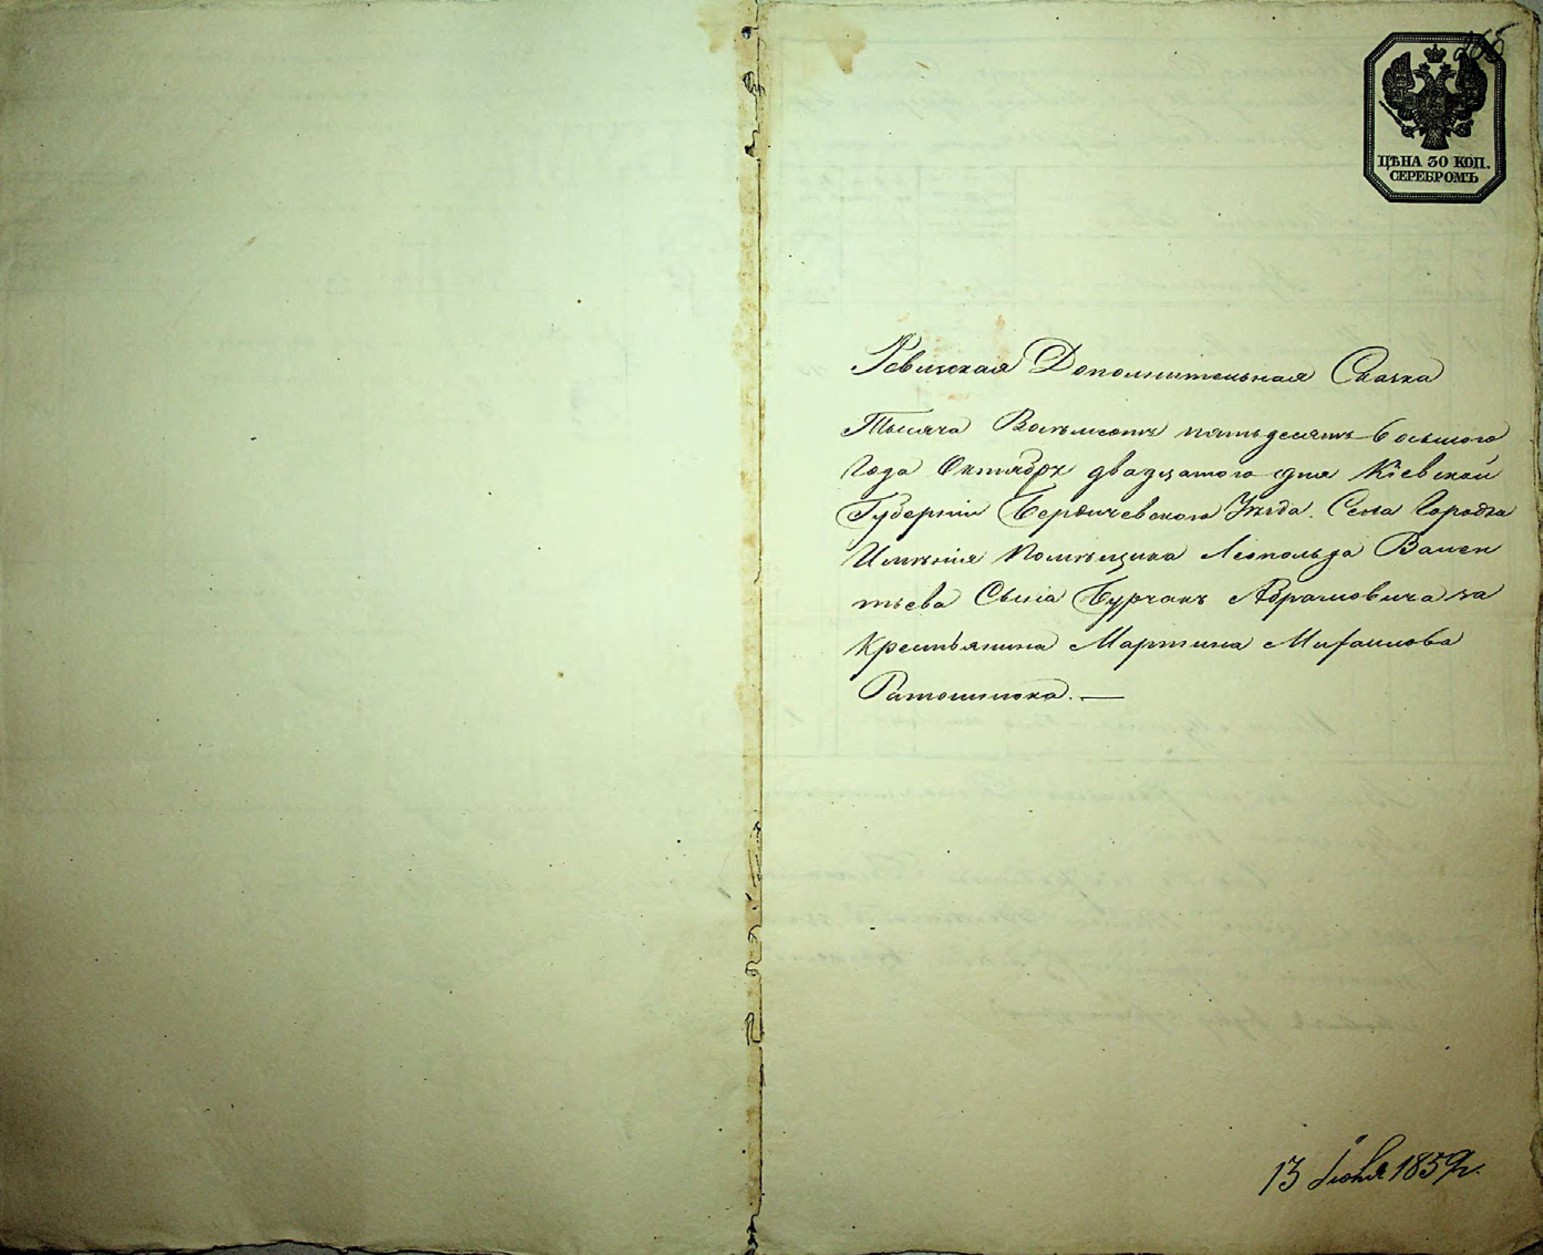 ЦѢНА 30 КОП.
СЕРЕБРОМЪ
Ревизская Дополнительная Сказка
Тысяча Восемьсотъ пятьдесятъ восьмого
Года Октября двадцатого дня Кіевской
Губерніи Бердичевского Уѣзда. Села Городка
Имѣнія Помѣщика Леопольда Вален
тьева Сына Бурчакъ Абрамовича за
Крестьянина Мартина Михайлова
13 Іюня 1859 г.